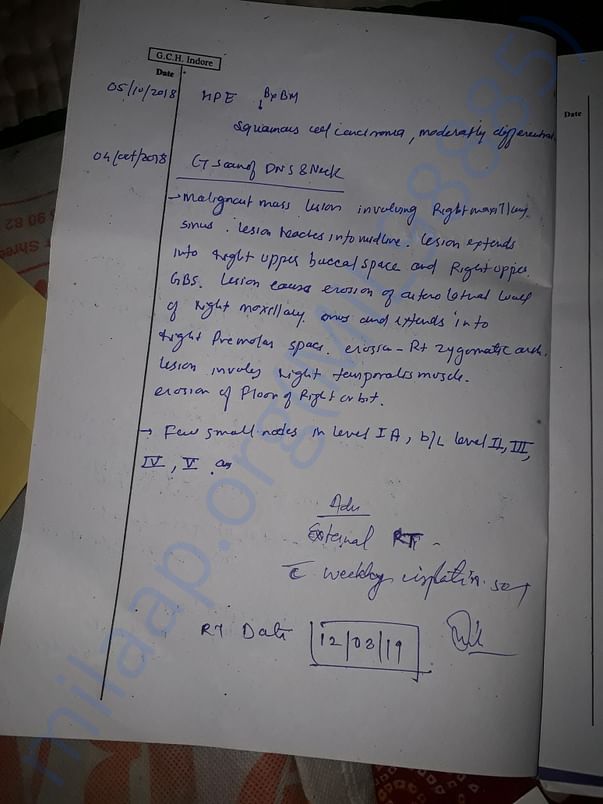 G.C.H. Indore
Date
Date
05/10/2018 HPE Bx BM
↓
Squamous cell carcinoma, moderatly differentiat
04/Oct/2018 CT scan of PNS & Neck
→ Malignant mass lesion involving Right maxillary
sinus. lesion reaches into midline. lesion extends
into right upper buccal space and Right upper
GBS. Lesion causes erosion of anterolateral wall
of right maxillary sinus and extends into
right Premolar space. erosion - Rt zygomatic arch.
lesion involves right temporalis muscle.
erosion of Floor of Right orbit.
→ Few small nodes in level IA, b/L level II, III,
IV, V.
Adv
External RT -
c̄ weekly cisplatin
RT Date 12/03/19
milaap.org